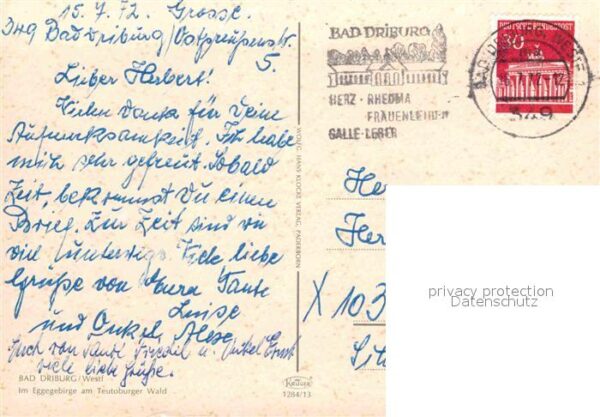 15.7.72. Grosse.
349 Bad Driburg/Ostpreußenstr.
5.
Lieber Herbert!
Vielen Dank für Deine
Aufmerksamkeit. Ich habe
mich sehr gefreut. Sobald
Zeit, bekommst Du einen
Brief. Zur Zeit sind wir
viel unterwegs. Viele liebe
Grüße von Eurer Tante
Luise
und Onkel
Auch von Tante Friedel u. Onkel Ernst
viele liebe Grüße.
BAD DRIBURG/Westf
Im Eggegebirge am Teutoburger Wald
WOLFG. HANS KLOCKE VERLAG, PADERBORN
Krüger
1284/13
BAD DRIBURG
HERZ · RHEUMA
FRAUENLEIDEN
GALLE-LEBER
DEUTSCHE BUNDESPOST
30
BAD DRIBURG
349
He
Her
X 103
privacy protection
Datenschutz